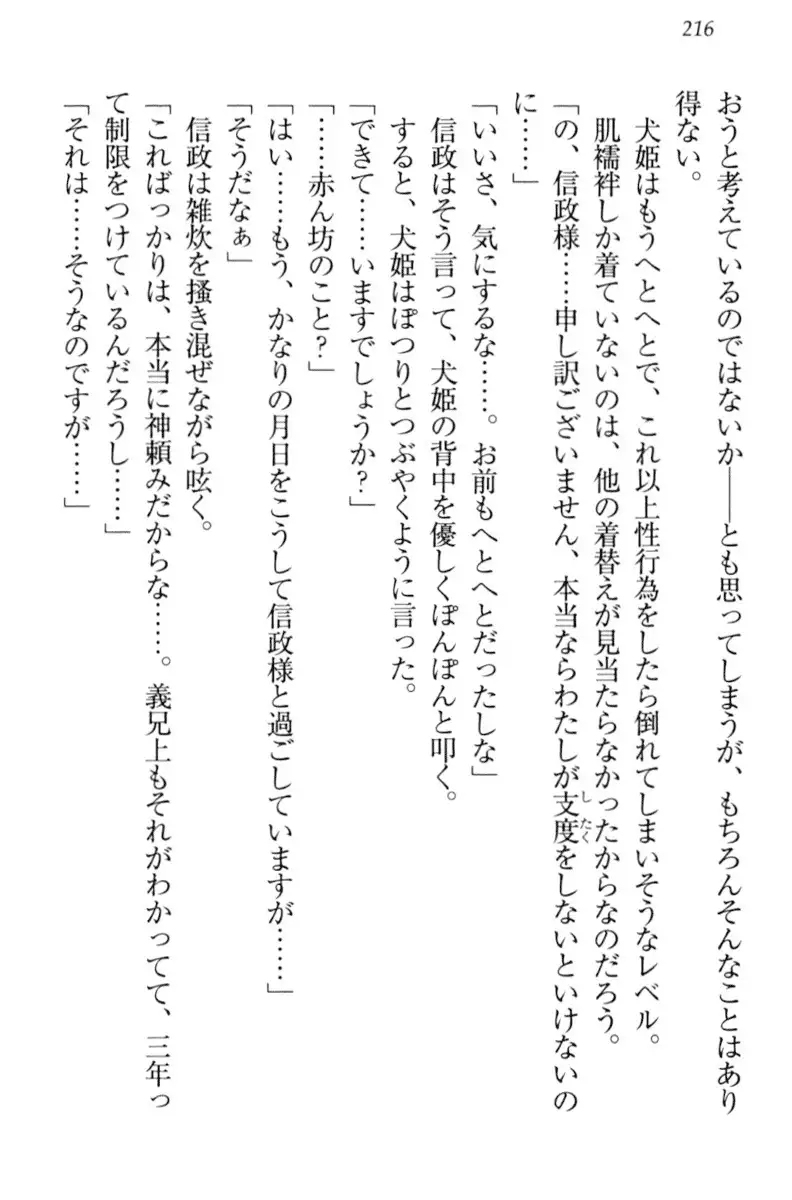 216
おうと考えているのではないか――とも思ってしまうが、もちろんそんなことはあり
得ない。
　犬姫はもうへとへとで、これ以上性行為をしたら倒れてしまいそうなレベル。
　肌襦袢しか着ていないのは、他の着替えが見当たらなかったからなのだろう。
「の、信政様……申し訳ございません、本当ならわたしが支度をしないといけないの
に……」
「いいさ、気にするな……。お前もへとへとだったしな」
　信政はそう言って、犬姫の背中を優しくぽんぽんと叩く。
　すると、犬姫はぽつりとつぶやくように言った。
「できて……いますでしょうか？」
「……赤ん坊のこと？」
「はい……もう、かなりの月日をこうして信政様と過ごしていますが……」
「そうだなぁ」
　信政は雑炊を掻き混ぜながら呟く。
「こればっかりは、本当に神頼みだからな……。義兄上もそれがわかってて、三年っ
て制限をつけているんだろうし……」
「それは……そうなのですが……」